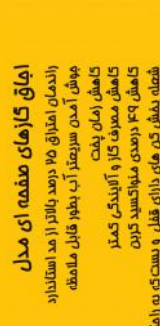 اجاق گازهای صفحه ای مدل
راندمان احتراق ۲۵ درصد بالاتر از حد استاندارد
جوش آمدن سریعتر آب بطور قابل ملاحظه
کاهش زمان پخت
کاهش مصرف گاز و آلایندگی کمتر
کاهش ۴۹ درصدی منواکسید کربن
شعله پخش کن های دارای قفل و بست که به راحتی